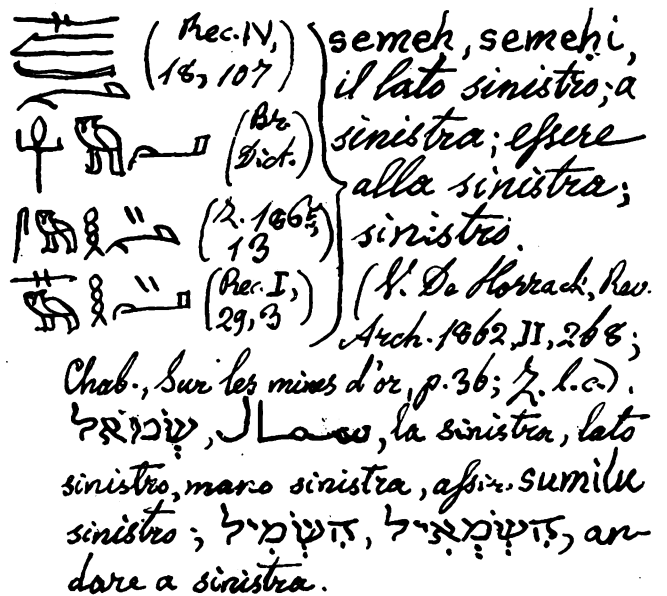 (Rec. IV, 18, 107) semeh, semeḥi,
il lato sinistro; a
(Br. Dict.) sinistra; essere
alla sinistra;
(Z. 1865, 13) sinistro.
(Rec. I, 29, 3) (V. De Horrack, Rev.
Arch. 1862, II, 268;
Chab., Sur les mines d'or, p. 36; Z. l. c.).
שְׂמֹואֵל, سمال, la sinistra, lato
sinistro, mano sinistra, assir. sumilu
sinistro; הִשְׂמִיל, הִשְׂמְאִיל, an-
dare a sinistra.